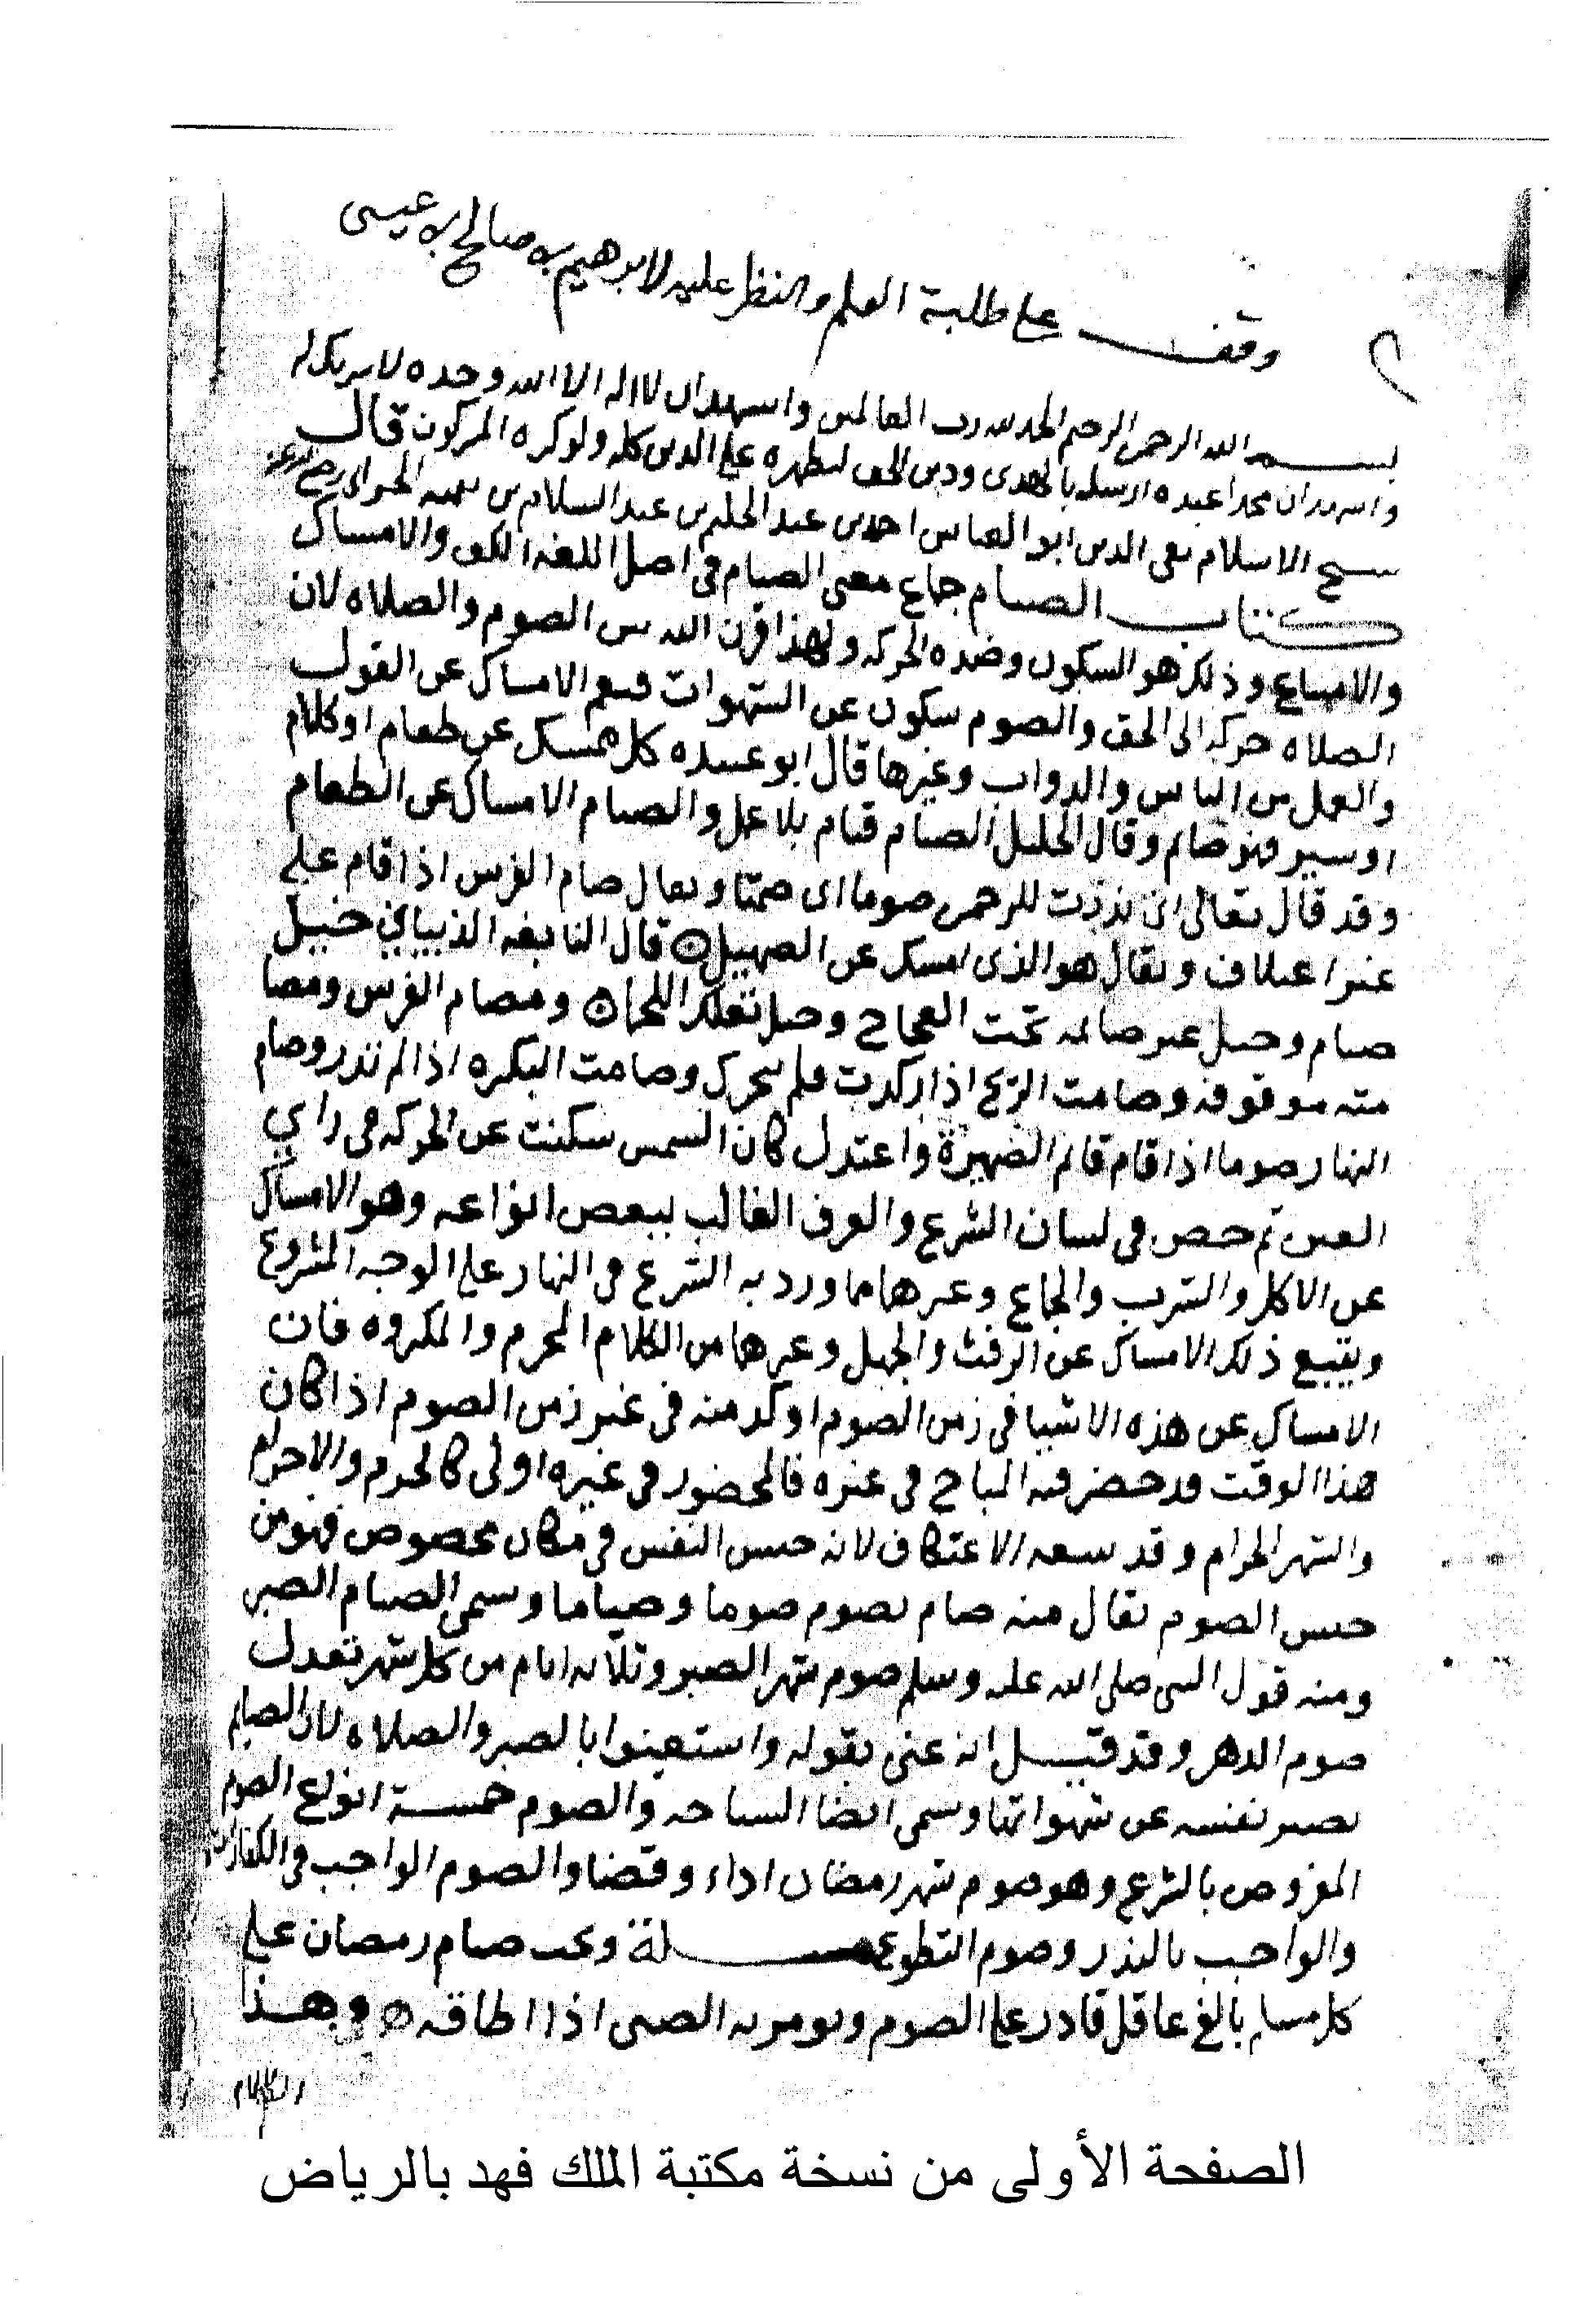 وقف على طلبة العلم والنظر عليه لابرهيم بن صالح بن عيسى
٢
بسم الله الرحمن الرحيم الحمد لله رب العالمين واشهد ان لا اله الا الله وحده لا شريك له
واشهد ان محمدا عبده ارسله بالهدى ودين الحق ليظهره على الدين كله ولو كره المشركون قال
شيخ الاسلام تقي الدين ابو العباس احمد بن عبد الحليم بن عبد السلام بن تيميه الحراني رضي الله عنه
كتاب الصيام جماع معنى الصيام في اصل اللغه الكف والامساك
والامتناع وذلك هو السكون وضده الحركه ولهذا قرن الله بين الصوم والصلاه لان
الصلاه حركه الى الحق والصوم سكون عن الشهوات فيعم الامساك عن القول
والعمل من الناس والدواب وغيرها قال ابو عبيده كل ممسك عن طعام او كلام
او سير فهو صايم وقال الخليل الصيام قيام بلا عمل والصيام الامساك عن الطعام
وقد قال تعالى اني نذرت للرحمن صوما اى صمتا ويقال صام الفرس اذا قام على
غير اعتلاف ويقال هو الذى امسك عن الصهيل قال النابغه الذبياني خيل
صيام وخيل غير صايمه تحت العجاج وخيل تعلك اللجما ومصام الفرس ومصا
مته موقوفه وصامت الريح اذا ركدت فلم تتحرك وصامت البكره اذا لم تدر وصام
النهار صوما اذا قام قايم الضهيرة واعتدل كان الشمس سكنت عن الحركه في راي
العين ثم خص في لسان الشرع والعرف الغالب ببعض انواعه وهو الامساك
عن الاكل والشرب والجماع وغيرها مما ورد به الشرع في النهار على الوجه المشروع
ويتبع ذلك الامساك عن الرفث والجهل وغيرها من الكلام المحرم والمكروه فان
الامساك عن هذه الاشيا في زمن الصوم اوكد منه في غير زمن الصوم اذا كان
هذا الوقت قد حضر فيه المباح في غيره فالمحضور في غيره اولى كالحرم والاحرام
والشهر الحرام وقد يتبعه الاعتكاف لانه حبس النفس في مكان مخصوص فهو من
جنس الصوم يقال منه صام يصوم صوما وصياما وسمى الصيام الصبر
ومنه قول النبي صلى الله عليه وسلم صوم شهر الصبر وثلاثه ايام من كل شهر تعدل
صوم الدهر وقد قيل انه عنى بقوله واستعينوا بالصبر والصلاه لان الصايم
يصبر نفسه عن شهواتها وسمى ايضا السياحه والصوم خمسة انواع الصوم
المفروض بالشرع وهو صوم شهر رمضان اداء وقضا والصوم الواجب في الكفارات
والواجب بالنذر وصوم التطوع مسلة ويجب صيام رمضان على
كل مسلم بالغ عاقل قادر على الصوم ويومر به الصبي اذا اطاقه وهذا
الكلام
الصفحة الأولى من نسخة مكتبة الملك فهد بالرياض